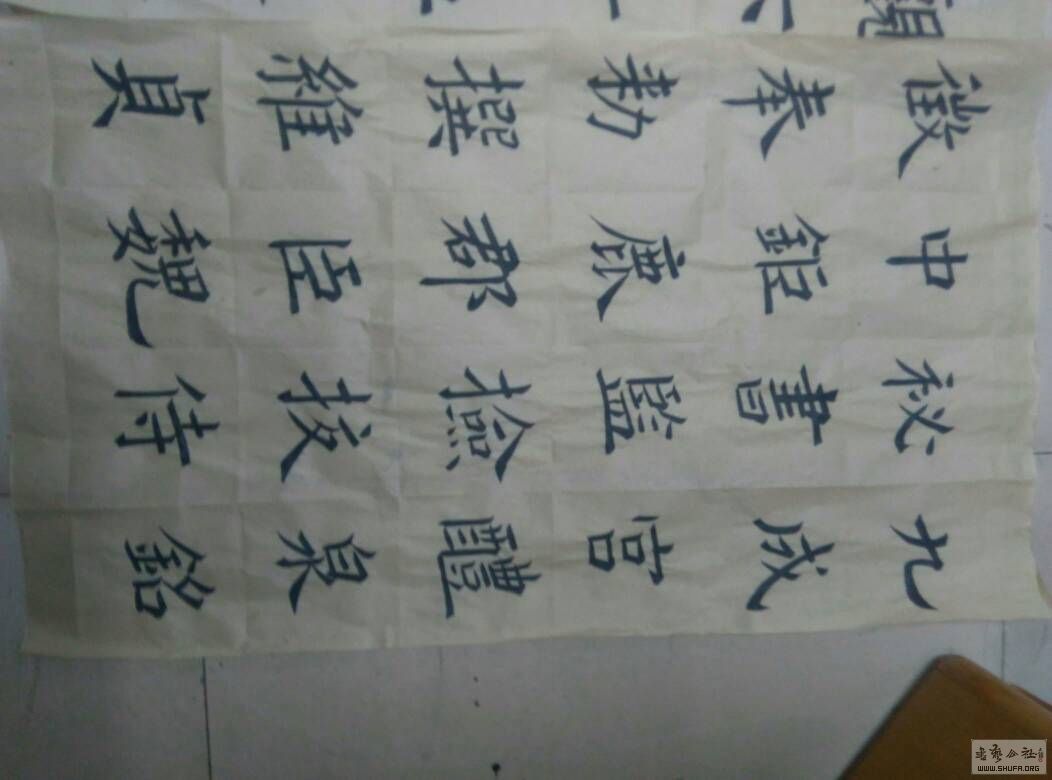 九成宫醴泉銘
秘書監撿挍侍
中鉅鹿郡臣魏
徵奉勅撰維貞
书艺公社
WWW.SHUFA.ORG